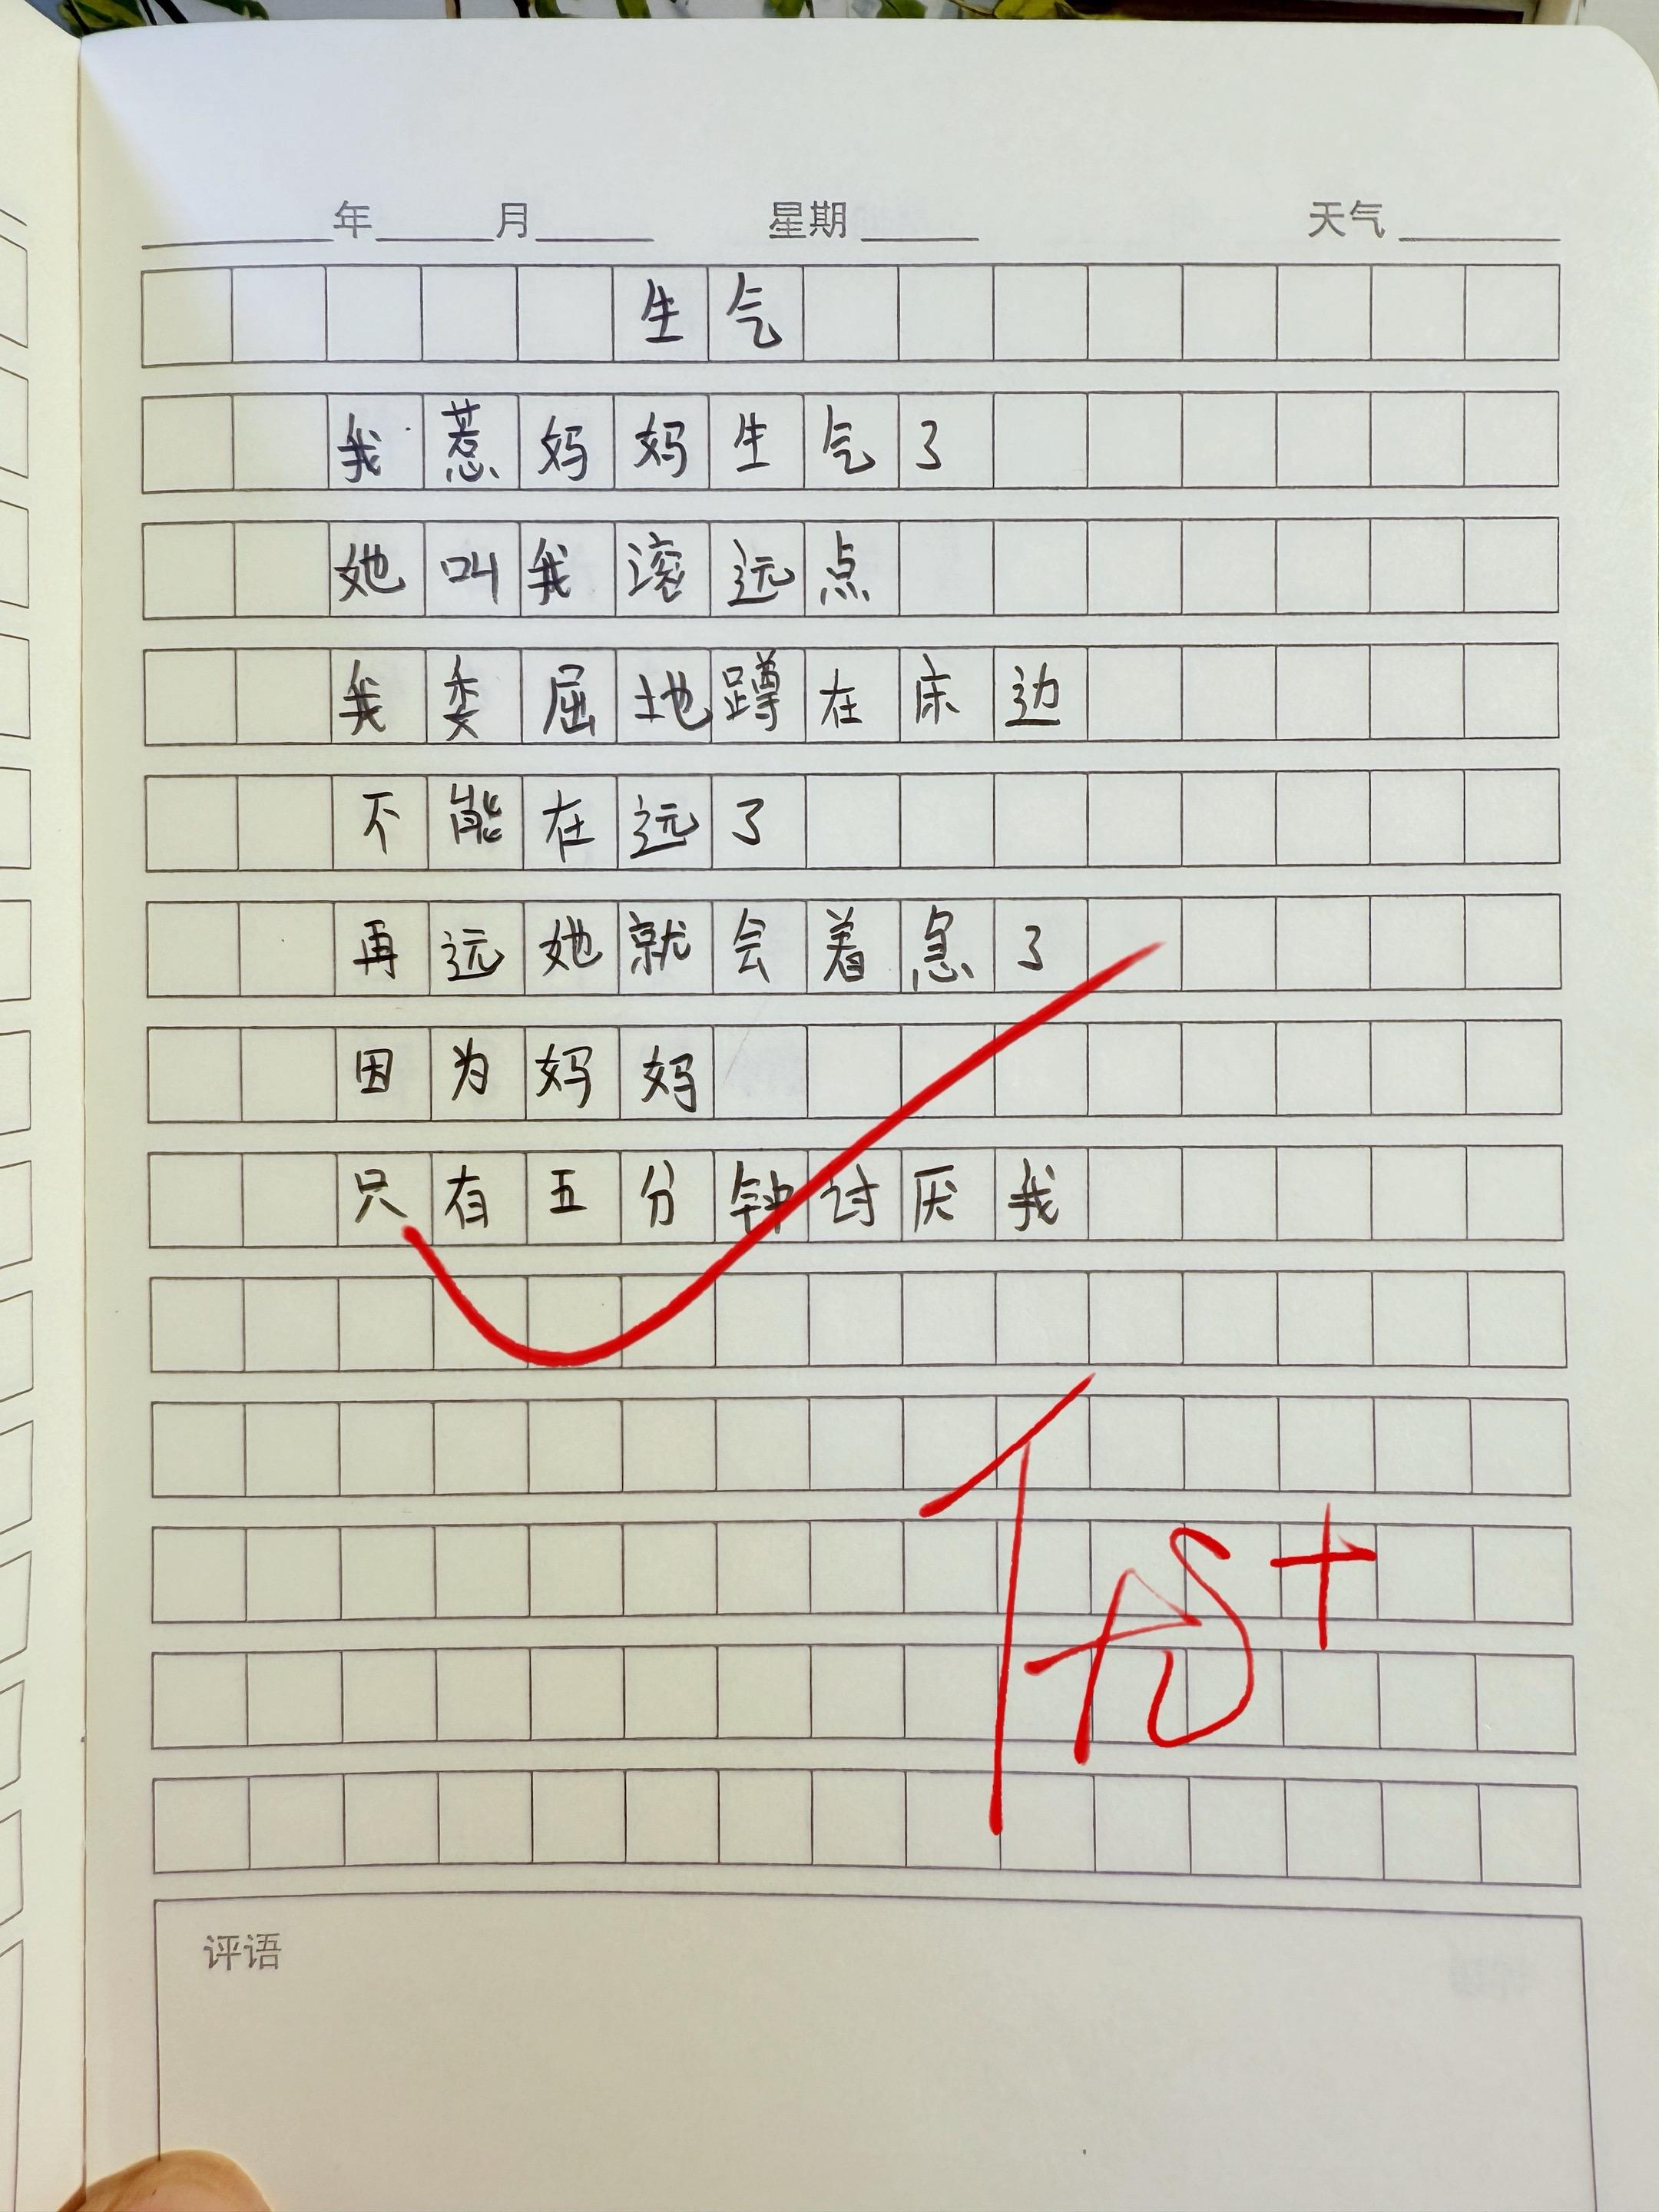 年 月 星期 天气
生气
我惹妈妈生气了
她叫我滚远点
我委屈地蹲在床边
不能在远了
再远她就会着急了
因为妈妈
只有五分钟讨厌我
评语